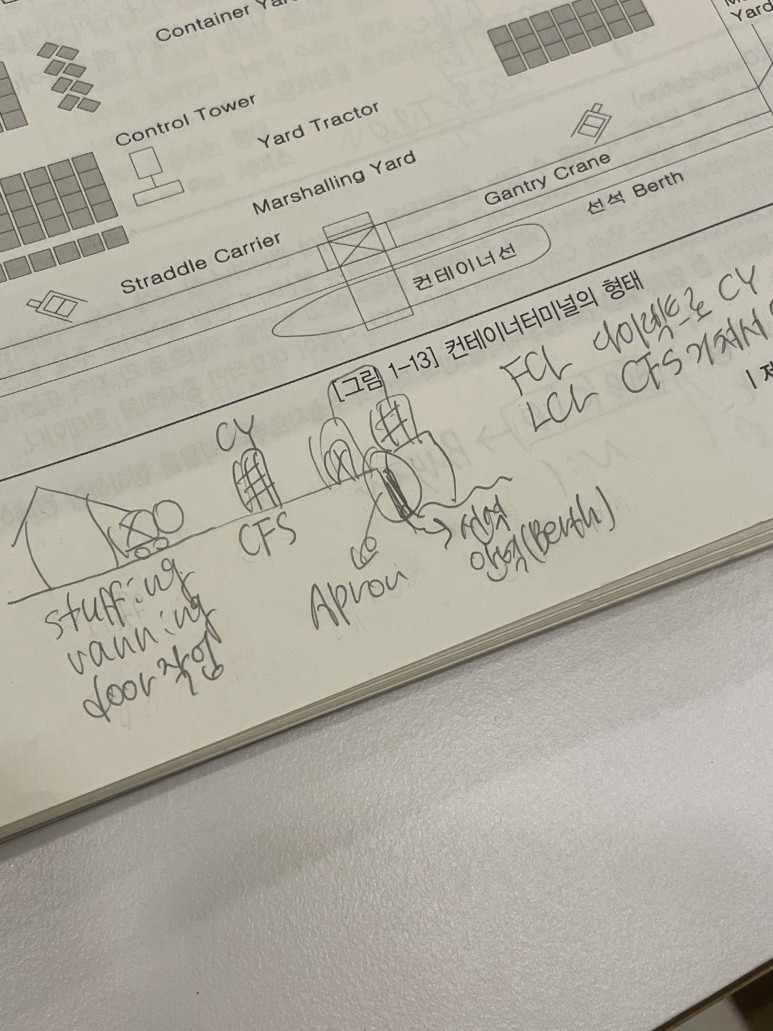 Container Yar
Yard
Control Tower
Yard Tractor
Marshalling Yard
Gantry Crane
선석 Berth
Straddle Carrier
컨테이너선
[그림 1-13] 컨테이너터미널의 형태
FCL 다이렉트로 CY
LCL CFS거쳐서
CY
CFS
stuffing
vanning
door작업
Apron
안벽(Berth)